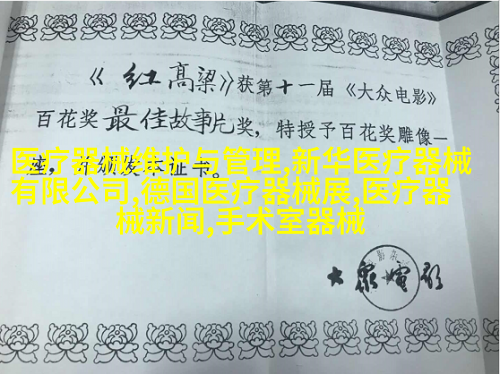 《红高粱》获第十一届《大众电影》
百花奖最佳故事片奖，特授予百花奖雕像一
座，并颁发本证书。
医疗器械维护与管理,新华医疗器械
有限公司,德国医疗器械展,医疗器
械新闻,手术室器械
大众电影